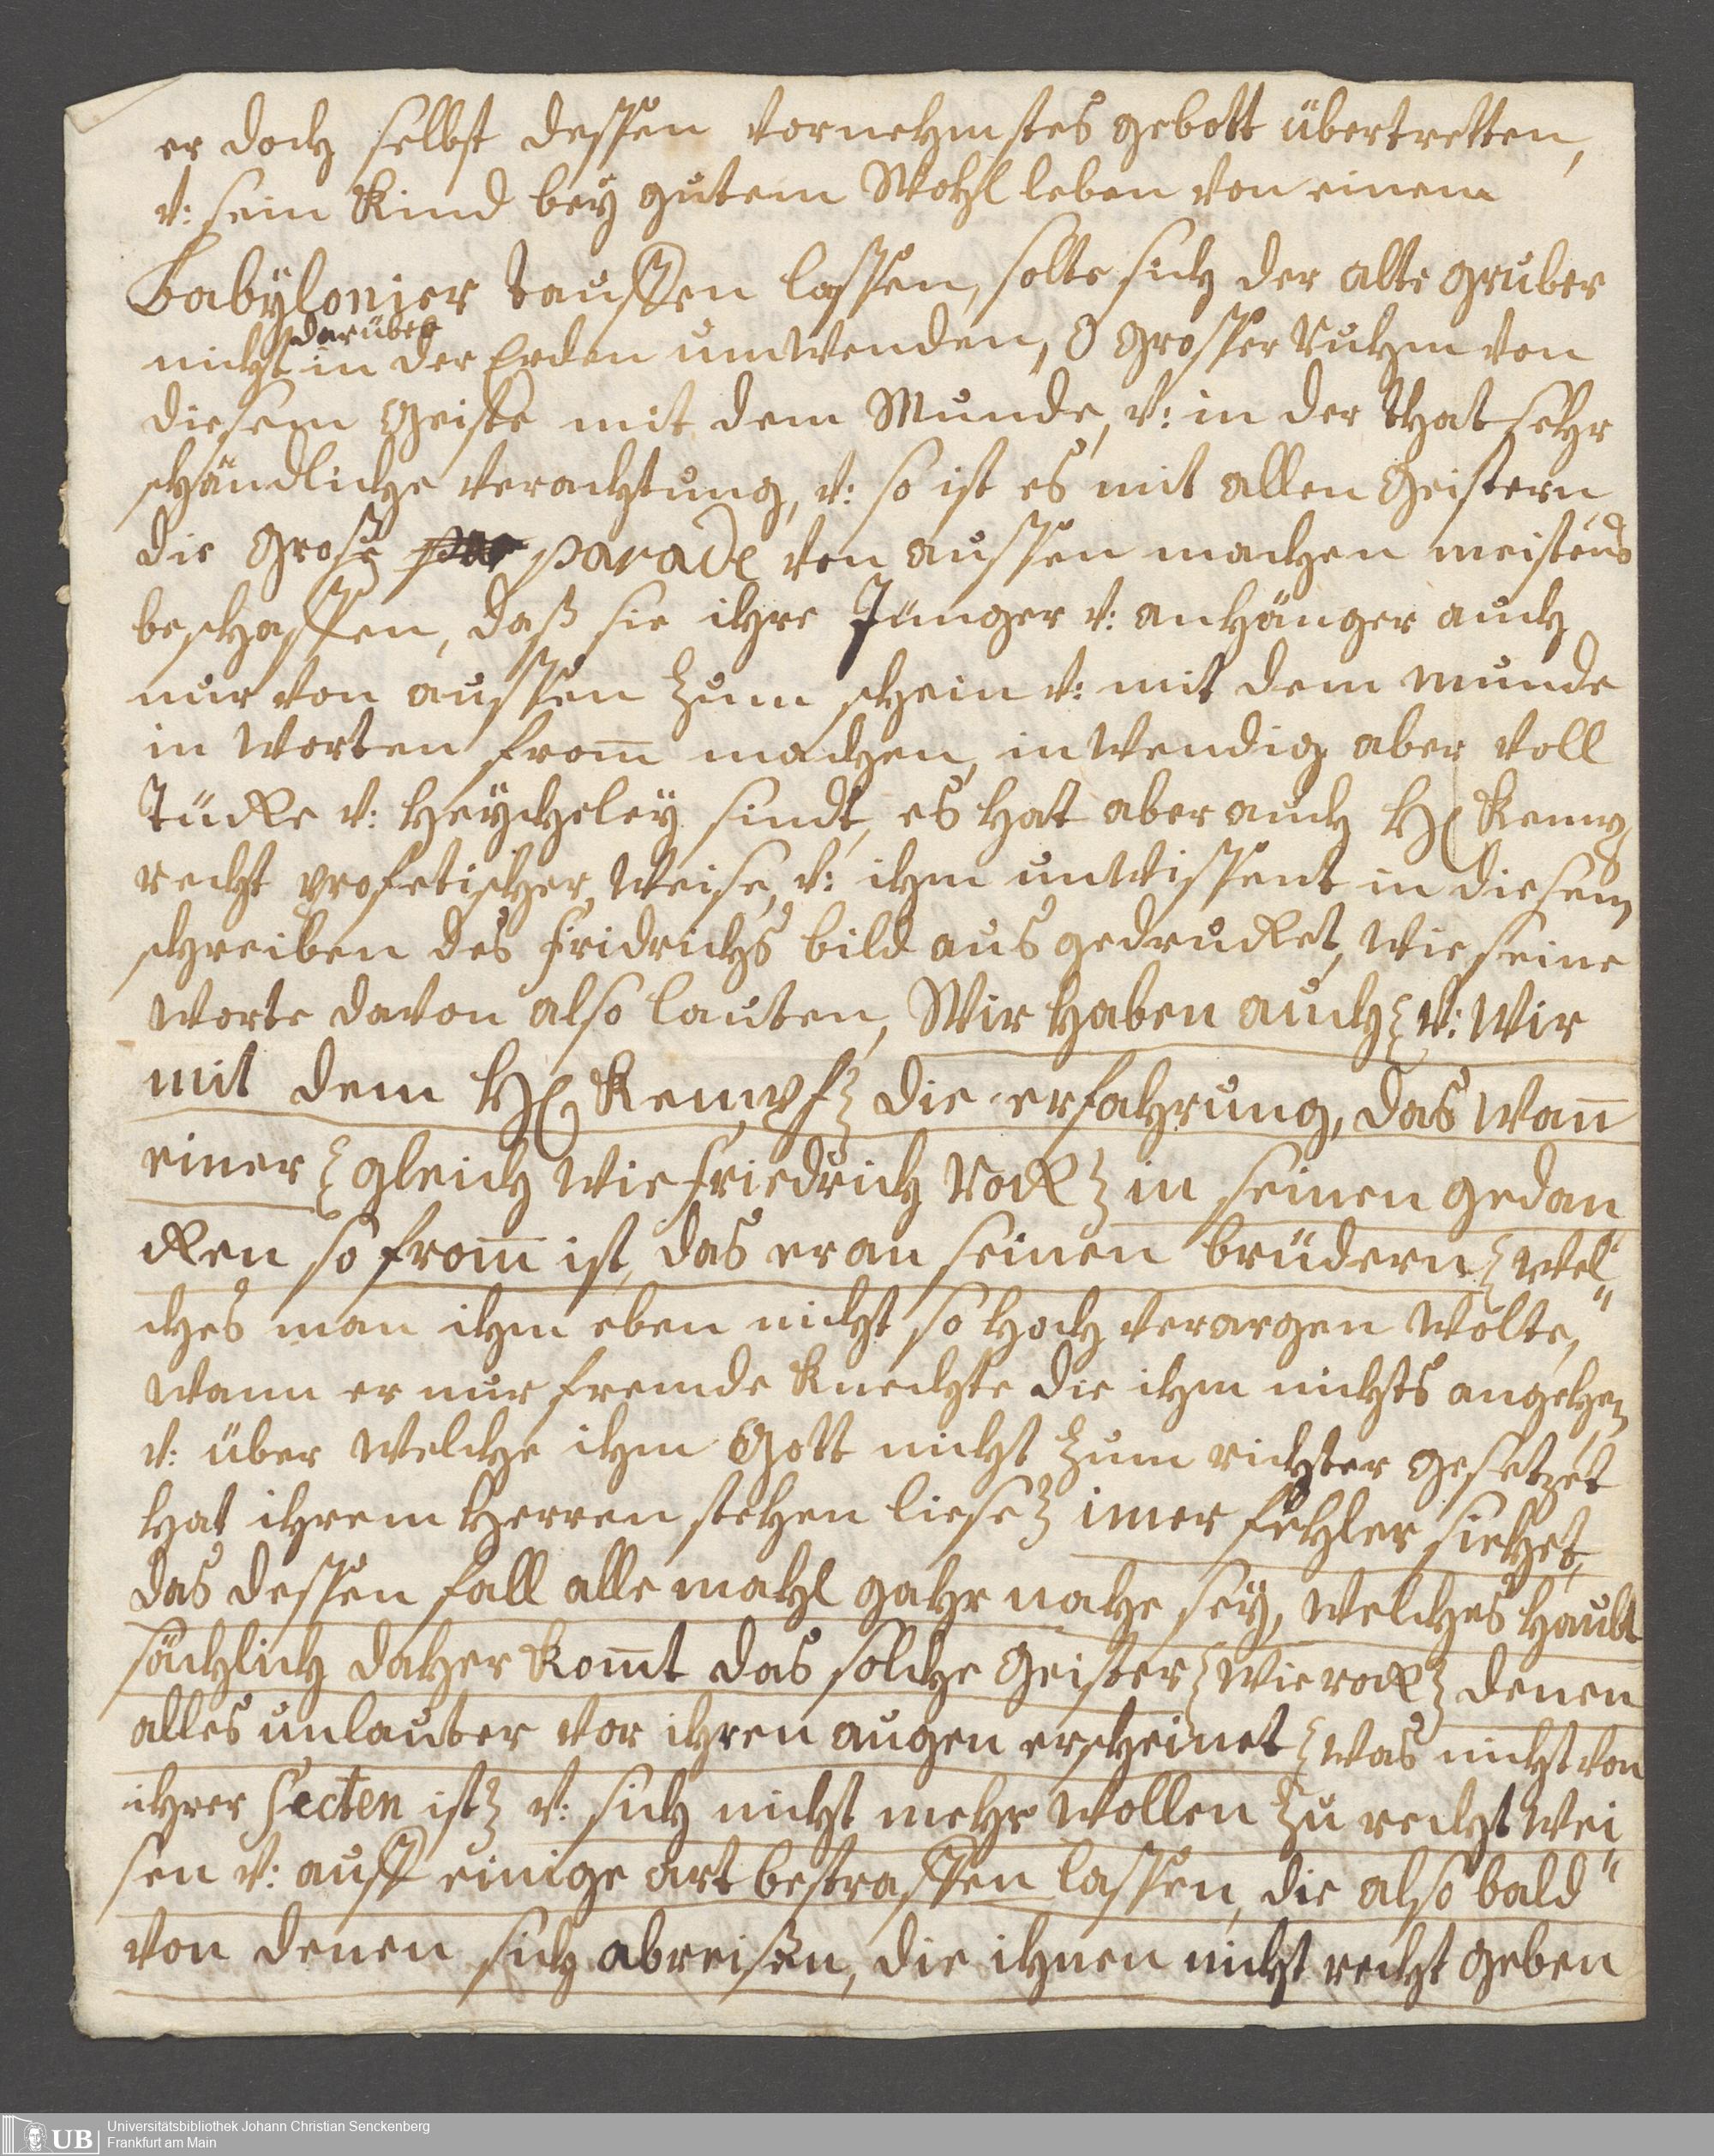 er doch selbst dessen vornehmstes gebott übertretten,
v: sein Kind bey gutem Wohl leben von einem
Babÿlonier tauffen lassen, solte sich der alte gruber
darüber
nicht in der Erden umwenden, O grosser Ruhm von
diesem Geiste mit dem Munde, v: in der that sehr
schändliche verachtung, v: so ist es mit allen Geistern
die große par parade von aussen machen meistens
beschaffen, daß sie ihre Jünger v: anhänger auch
nur von aussen zum schein v: mit dem munde
in worten from̅ machen, inwendig aber voll
Tücke v: heÿcheleÿ sindt, es hat aber auch H Kempf
recht profetischer weise, v: ihm unwissent in diesem
schreiben des fridrichs bild ausgedrucket, wie seine
worte davon also lauten, Wir haben auch { v: wir
mit dem H Kempf } die erfahrung, das wan̅
einer { gleich wie friedrich Rock } in seinen gedan
cken so from̅ ist, das er an seinen brüdern { wel"
ches man ihm eben nicht so hoch verargen wolte,
wann er nur fremde knechte die ihm nichts angehen
v: über welche ihm Gott nicht zum richter gesetzet
hat ihrem Herren stehen liese } im̅er fehler siehet,
das dessen fall alle mahl gahr nahe seÿ, welches haubt
sächlich daher kom̅t das solche geister { wie rock } denen
alles unlauter vor ihren augen erscheinet { was nicht von
ihrer Secten ist } v: sich nicht mehr wollen zu recht wei"
sen v: auff einige art bestraffen lassen, die also bald
von denen sich abreißen, die ihnen nicht recht geben
UB
Universitätsbibliothek Johann Christian Senckenberg
Frankfurt am Main